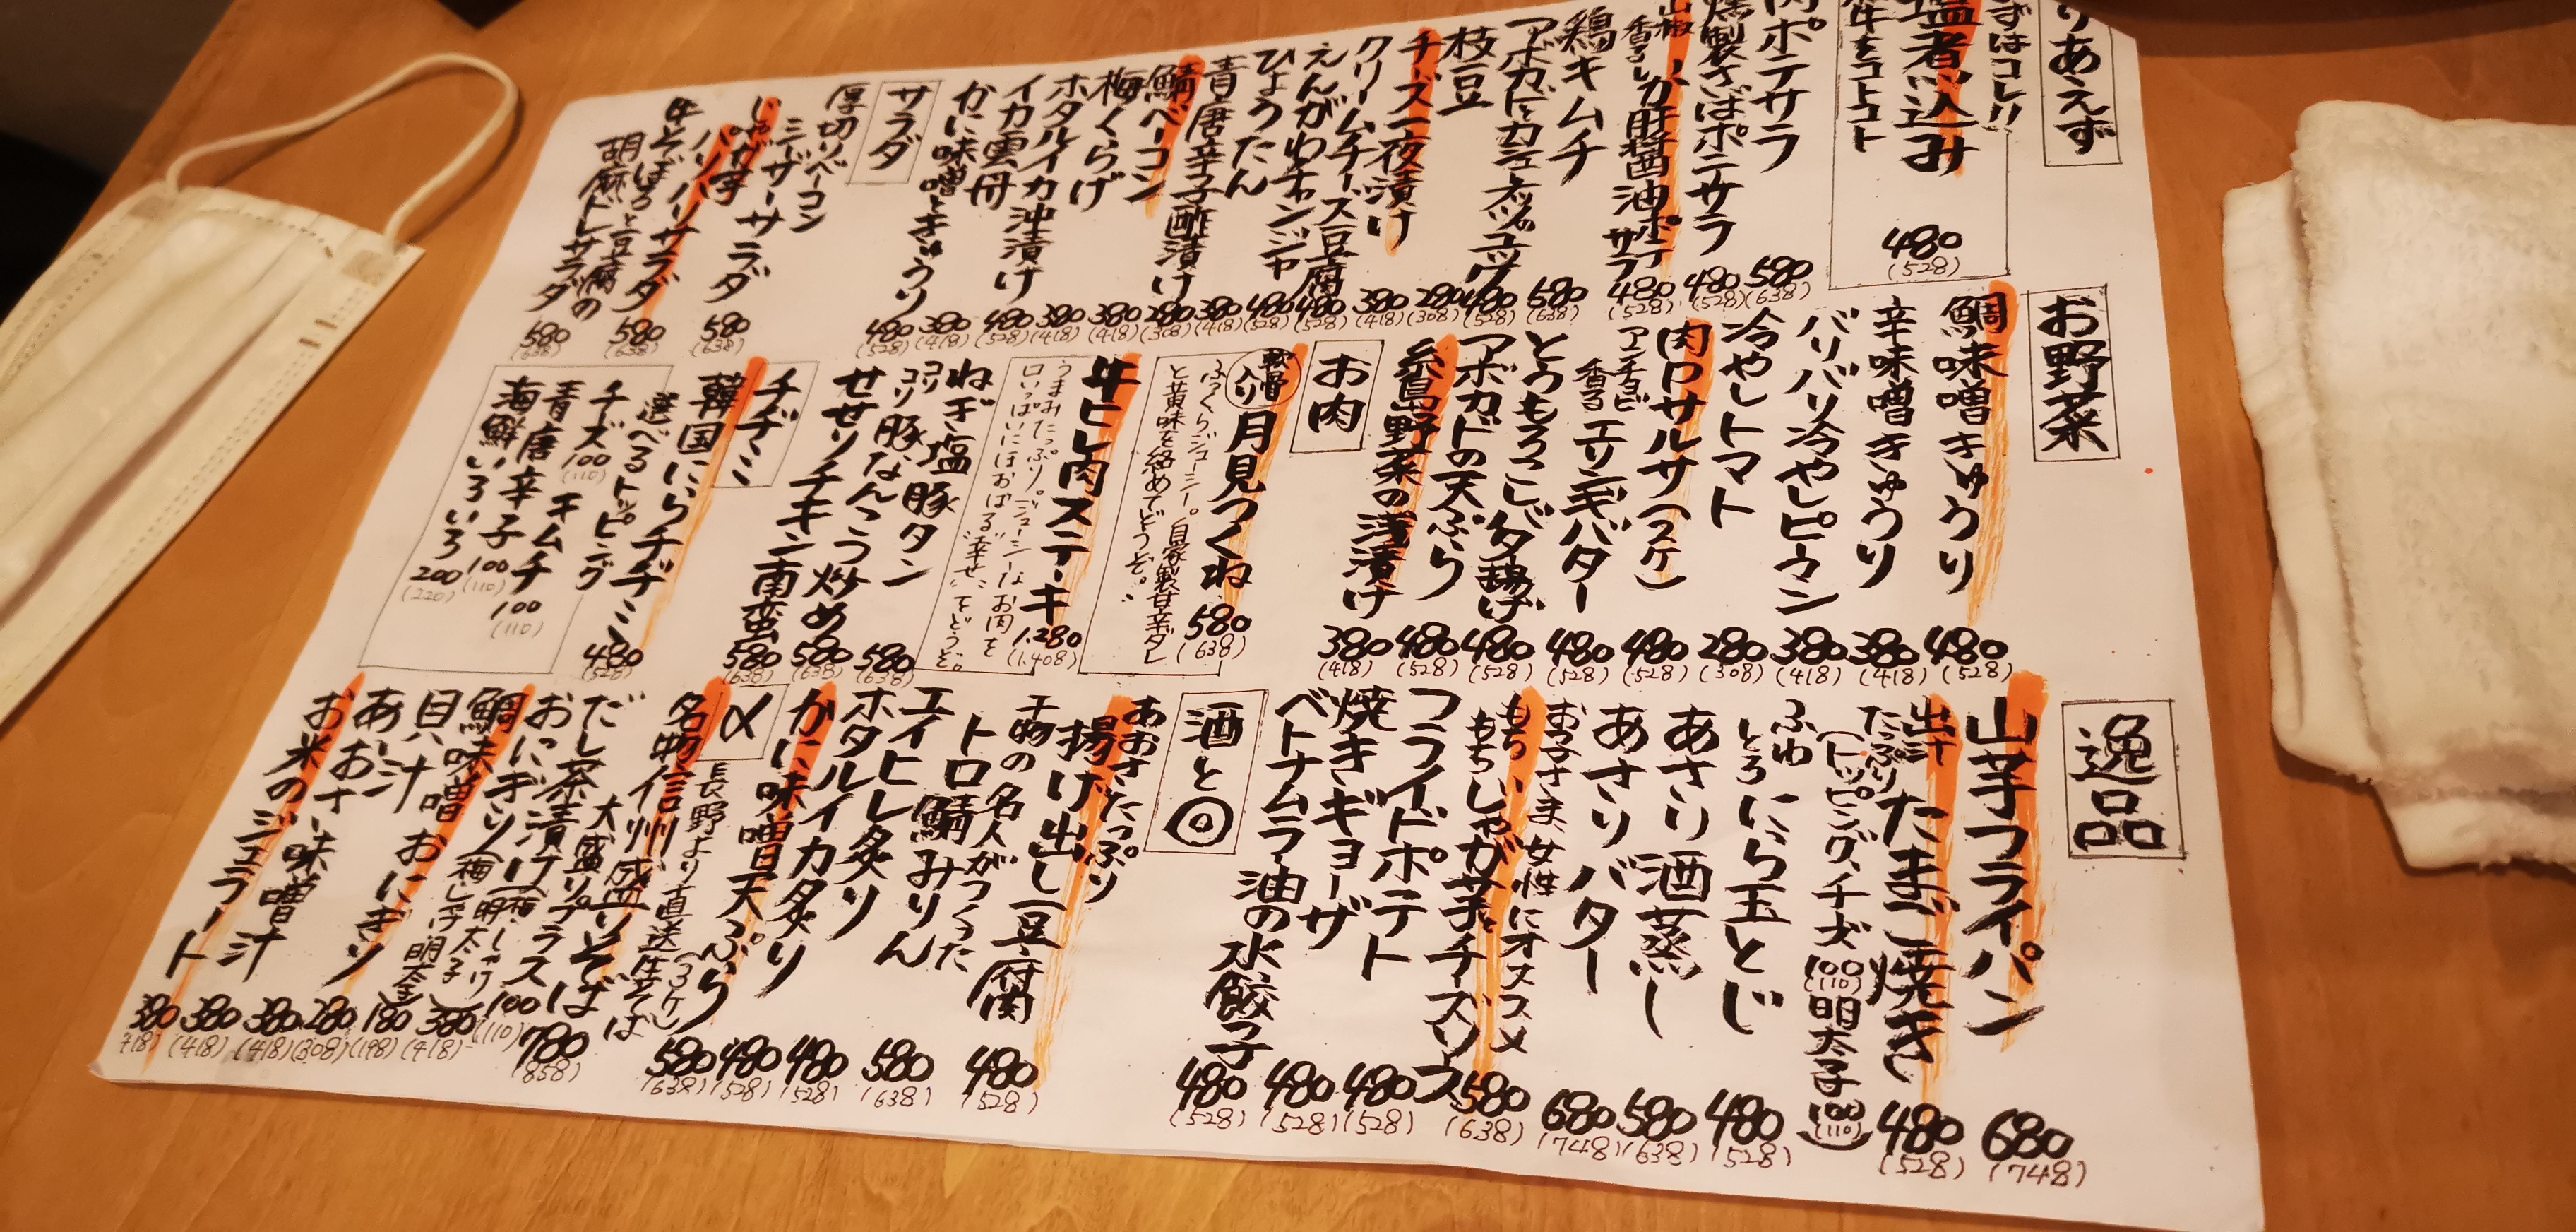 りあえず
ずはコレ!!
塩煮込み
牛をコトコト
480
(528)
肉ポテサラ
580
(638)
燻製さばポテサラ
480
(528)
山椒香るイカ肝醤油ポテサラ
480
(528)
鶏キムチ
580
(638)
アボカドとカシューナッツのユッケ
480
(528)
枝豆
280
(308)
チーズ一夜漬け
380
(418)
クリームチーズ豆腐
480
(528)
えんがわチャンジャ
480
(528)
ひょうたん
380
(418)
青唐辛子酢漬け
280
(308)
鯖ベーコン
380
(418)
梅くらげ
380
(418)
ホタルイカ沖漬け
480
(528)
イカ雲丹
380
(418)
かに味噌ときゅうり
480
(528)
サラダ
厚切りベーコン
シーザーサラダ
580
(638)
じゃが芋
パリパリサラダ
580
(638)
牛そぼろと豆腐の
胡麻ドレサラダ
580
(638)
お野菜
鯛味噌きゅうり
480
(528)
辛味噌きゅうり
380
(418)
バリバリ冷やしピーマン
380
(418)
冷やしトマト
280
(308)
肉肉サルサ(2ケ)
480
(528)
アンチョビ
香るエリンギバター
480
(528)
とうもろこしバタ揚げ
480
(528)
アボカドの天ぷら
480
(528)
糸島野菜の浅漬け
380
(418)
お肉
軟骨入り
月見つくね
580
(638)
ふっくらジューシー。自家製甘辛ダレ
と黄味を絡めてどうぞ。
牛ヒレ肉ステーキ
1,280
(1,408)
うまみたっぷり。ジューシーなお肉を
口いっぱいにほおばる“幸せ”をどうぞ。
ねぎ塩豚タン
580
(638)
コリコリ豚なんこつ炒め
580
(638)
せせりチキン南蛮
580
(638)
チヂミ
韓国にらチヂミ
480
(528)
選べるトッピング
チーズ100
(110)
キムチ100
(110)
青唐辛子100
(110)
海鮮いろいろ200
(220)
逸品
山芋フライパン
680
(748)
出汁たっぷりたまご焼き
480
(528)
(トッピング、チーズ100(110)明太子100(110))
ふわとろにら玉とじ
480
(528)
あさり酒蒸し
580
(638)
あさりバター
680
(748)
お子さま、女性にオススメ
もちもちじゃが芋チーズソース
580
(638)
フライドポテト
480
(528)
焼きギョーザ
480
(528)
ベトナムラー油の水餃子
480
(528)
酒と◎
あおさたっぷり
揚げ出し豆腐
480
(528)
干物の名人がつくった
トロ鯖みりん
580
(638)
エイヒレ炙り
480
(528)
ホタルイカ炙り
480
(528)
かに味噌天ぷら(3ケ)
580
(638)
〆
長野より直送生そば
名物信州盛りそば
780
(858)
大盛りプラス100
(110)
だし茶漬け(梅・しゃけ・明太子)
380
(418)
おにぎり(梅・しゃけ・明太子)
180
(198)
鯛味噌おにぎり
280
(308)
貝汁
380
(418)
あら汁
あおさ味噌汁
380
(418)
お米のジェラート
380
(418)